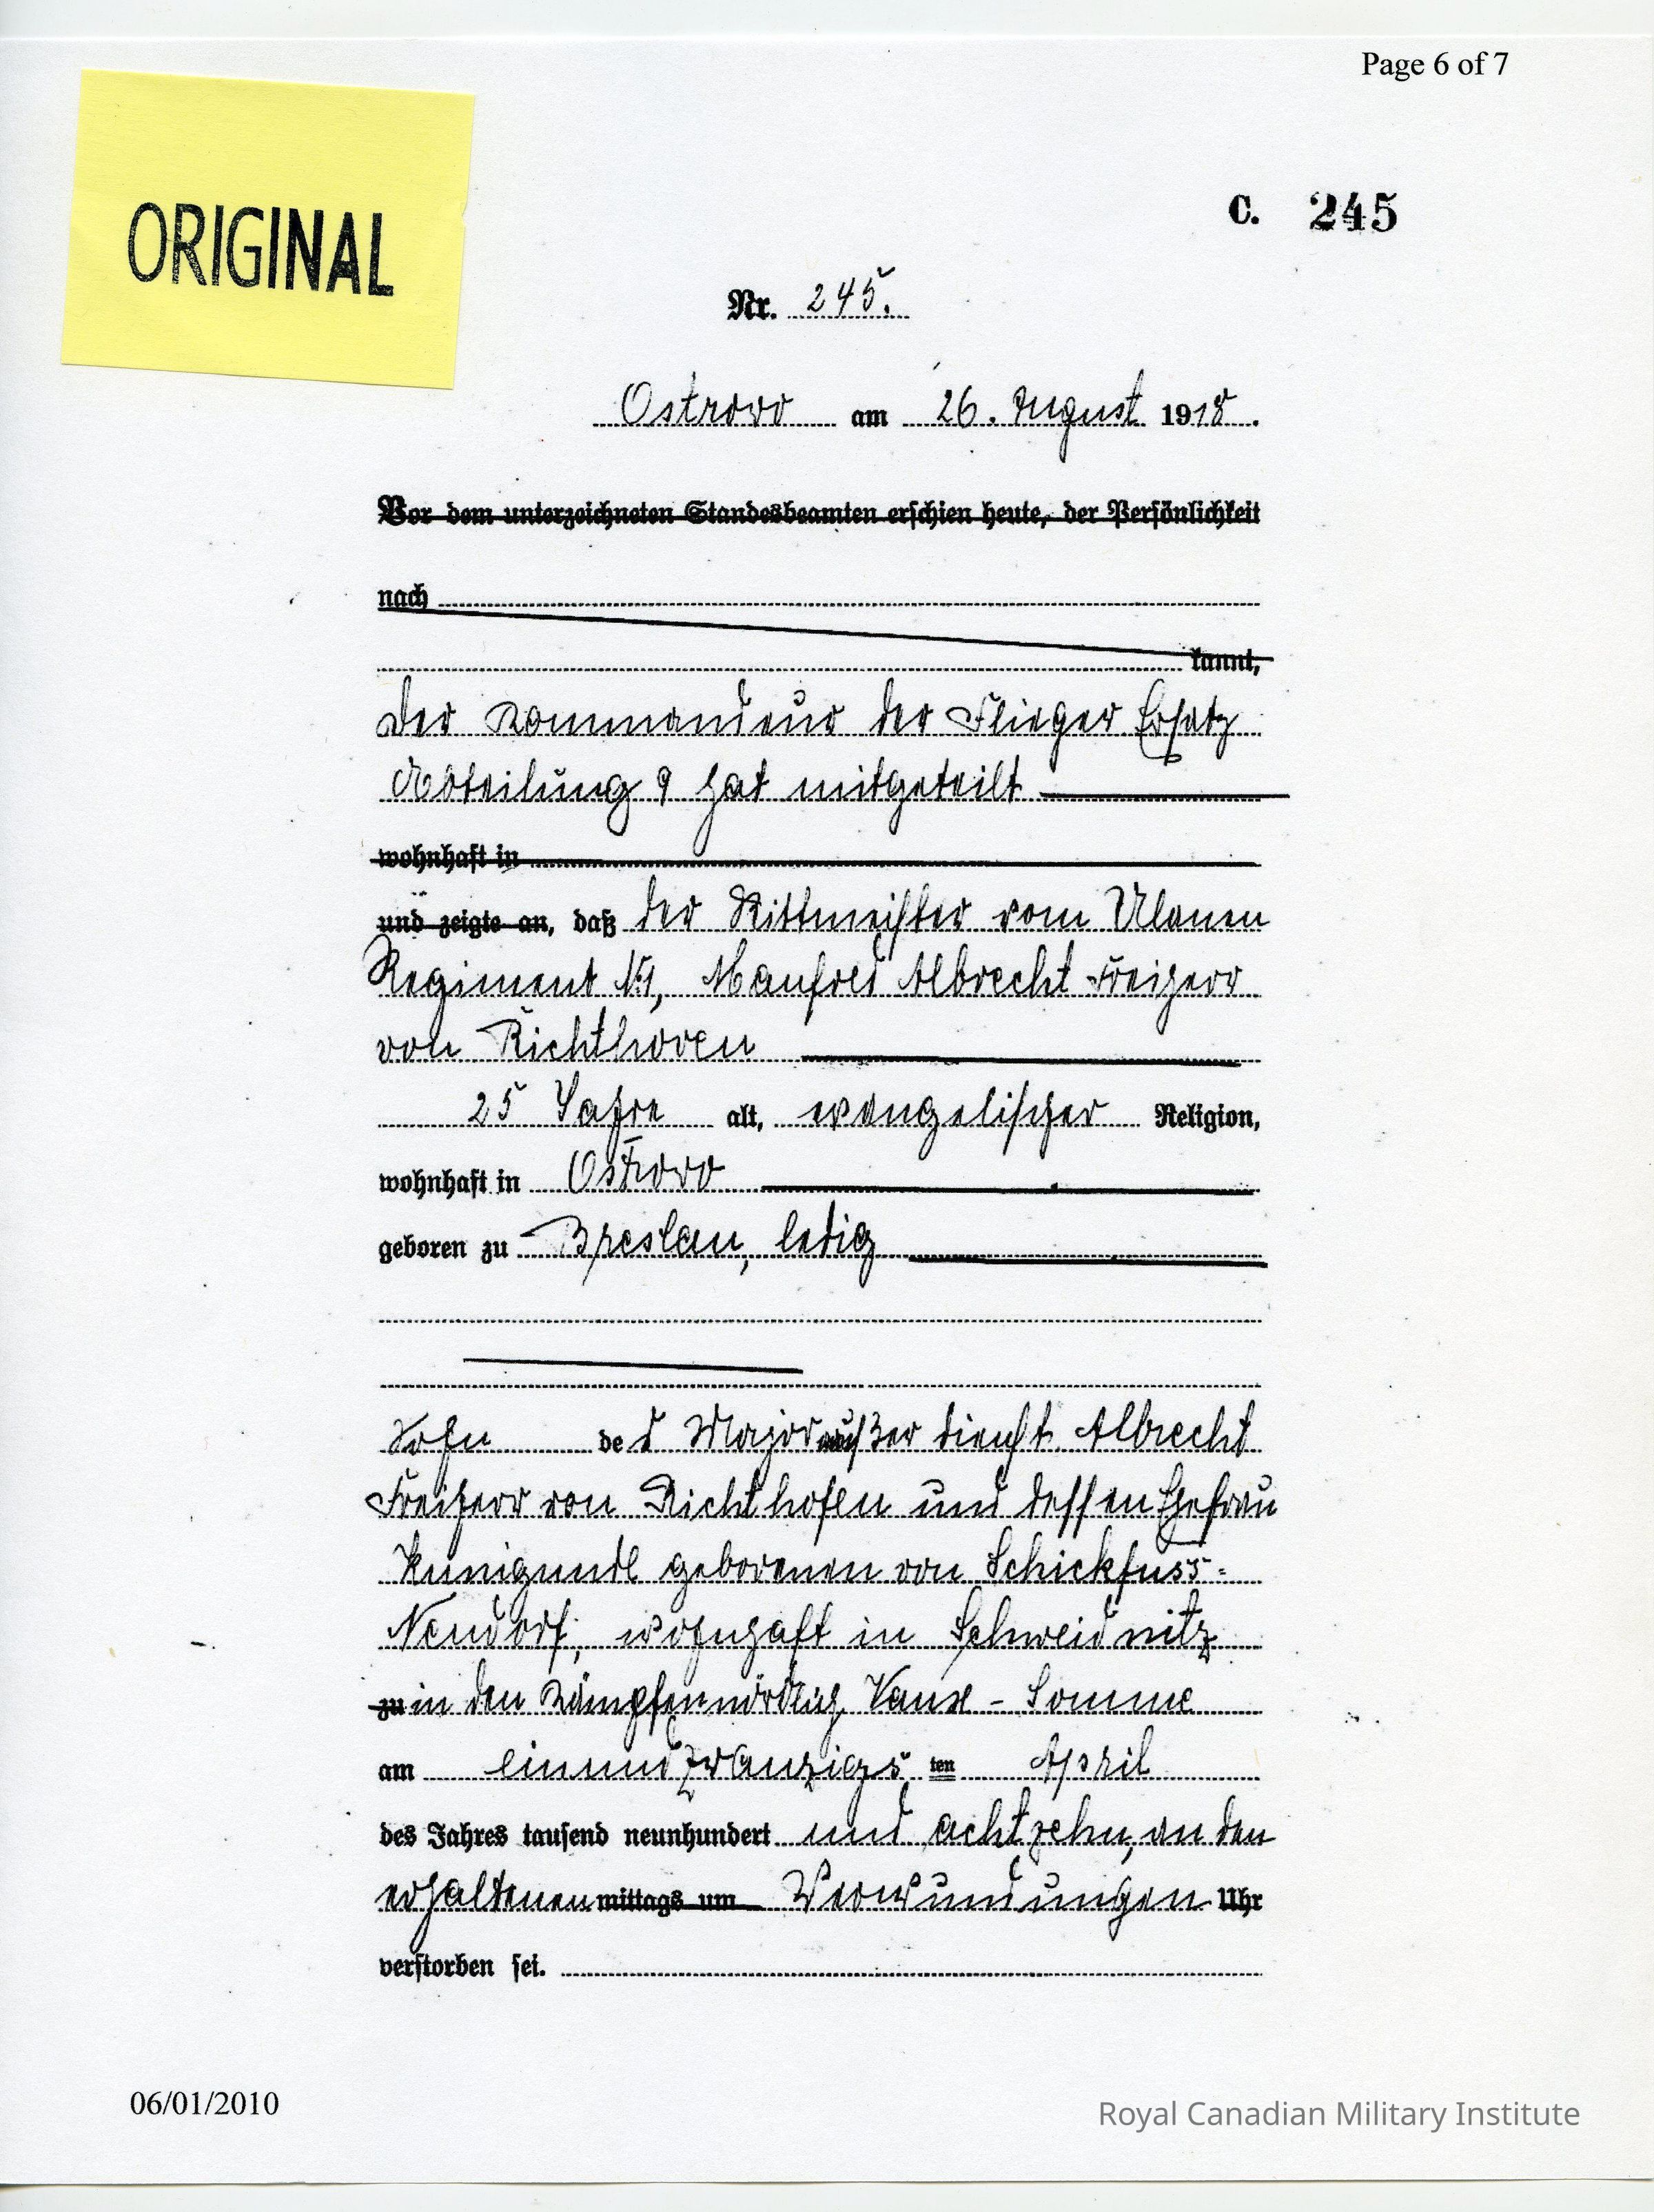 Page 6 of 7
ORIGINAL
C. 245
Nr. 245.
Ostrowo am 26. August 1918.
Vor dem unterzeichneten Standesbeamten erschien heute, der Persönlichkeit
nach
kannt,
Der Kommandeur der Flieger Ersatz
Abteilung 9 hat mitgeteilt
wohnhaft in
und zeigte an, daß der Rittmeister vom Ulanen
Regiment N: 1, Manfred Albrecht Freiherr
von Richthoven
25 Jahre alt, evangelischer Religion,
wohnhaft in Ostrowo
geboren zu Breslau, ledig
Sohn des Major außer Dienst Albrecht
Freiherr von Richthofen und dessen Ehefrau
Kunigunde geborenen von Schickfuss-
Neudorf, wohnhaft in Schweidnitz
zu in den Kämpfen nördlich Vaux - Somme
am einundzwanzigs ten April
des Jahres tausend neunhundert und achtzehn, an den
erhaltenen mittags um Verwundungen Uhr
verstorben sei.
06/01/2010
Royal Canadian Military Institute